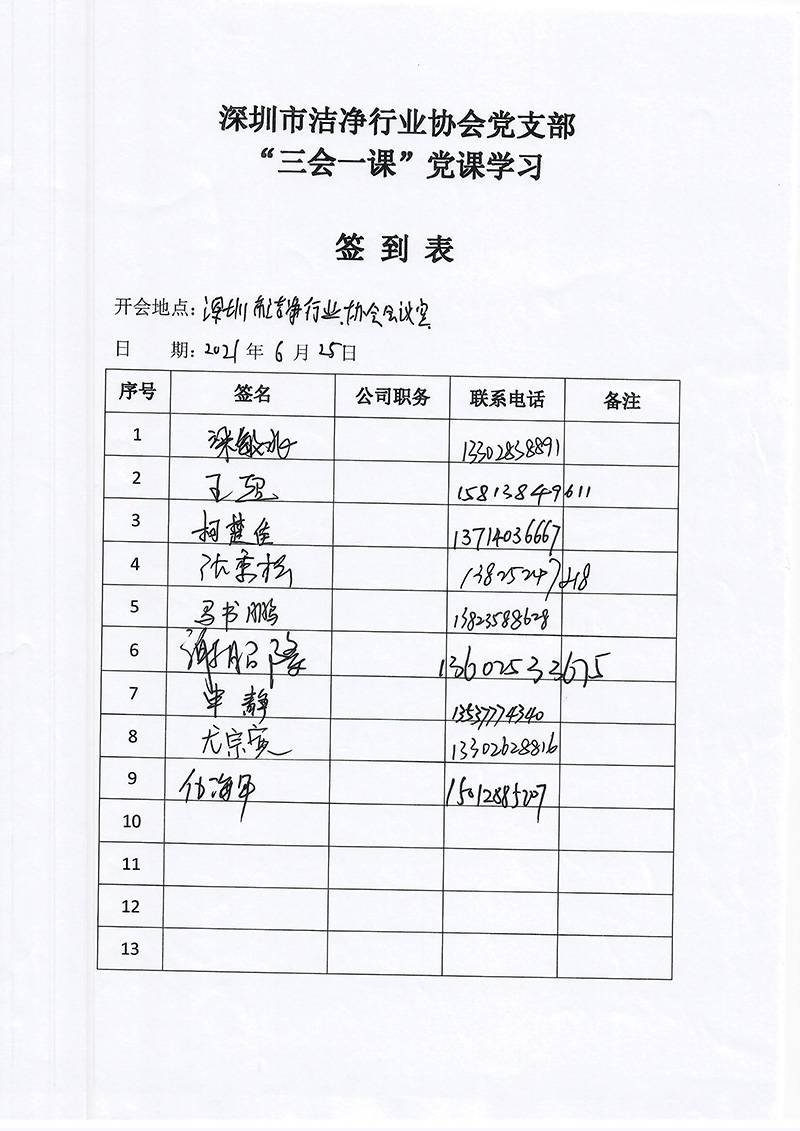 深圳市洁净行业协会党支部
“三会一课”党课学习
签到表
开会地点：深圳市洁净行业协会会议室
日 期：2021年6月25日
序号 签名 公司职务 联系电话 备注
1 13302838891
2 王 15813849611
3 柯楚佳 13714036667
4 138252472118
5 马书鹏 13823588628
6 谢昭隆 13602533675
7 申静 13537774340
8 尤宗 13302628816
9 海军 15012885207
10
11
12
13